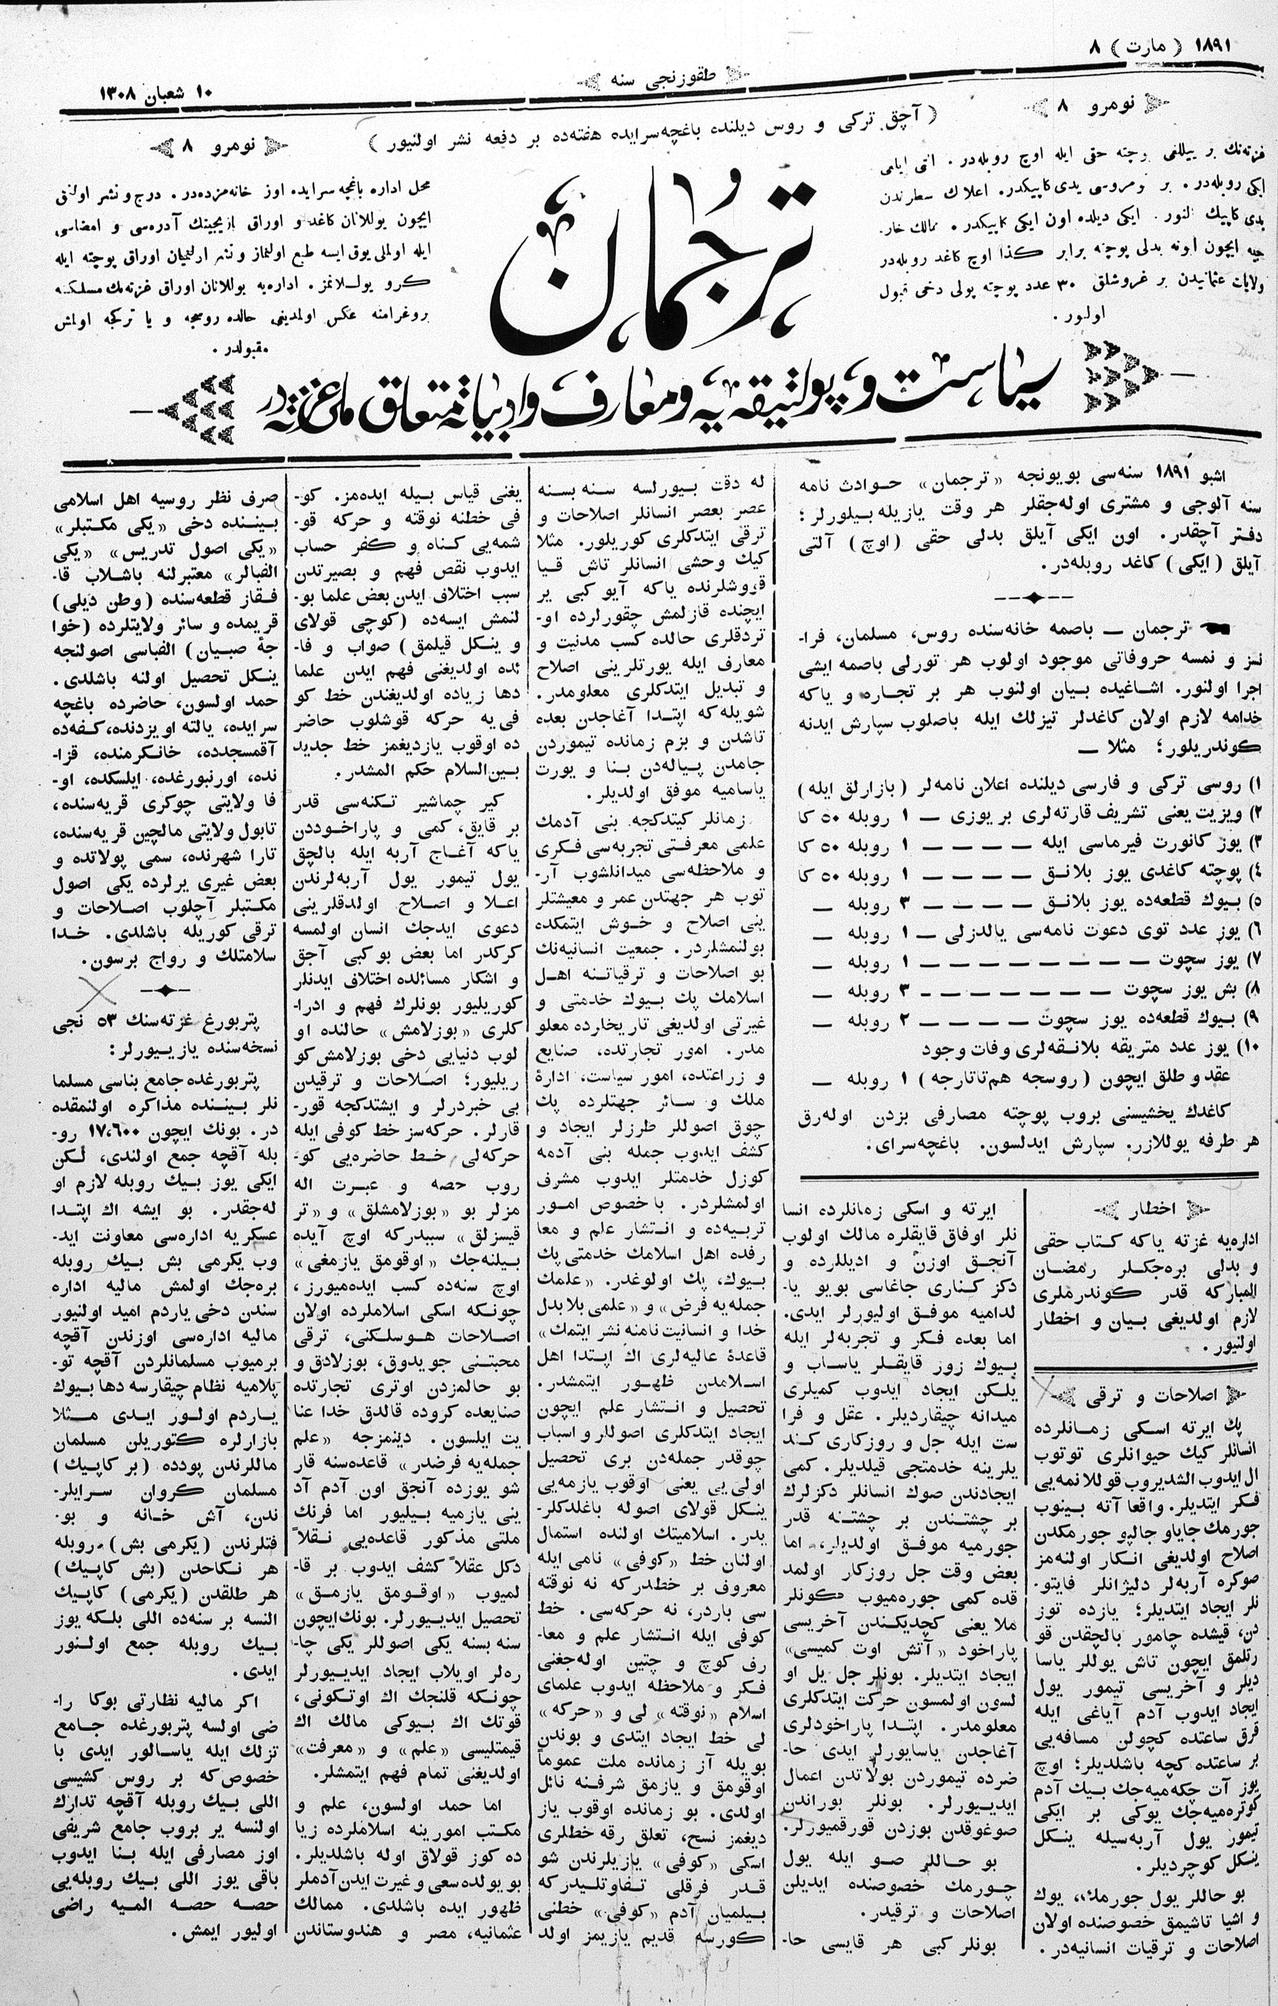 ١٨٩١ ( مارت ) ٨
طقوزنجی سنه
١٠ شعبان ١٣٠٨
نومرو ٨
( آچق ترکی و روس دیلنده باغچه‌سرایده هفته‌ده بر دفعه نشر اولنیور )
نومرو ٨
غزته‌نك بر ییللغی پوچته حقی ایله اوچ روبله‌در. التی ایلغی
ایکی روبله‌در. بر نومروسی یدی کاپیکدر. اعلانك سطرندن
یدی کاپیك النور. ایکی دیلده اون ایکی کاپیکدر. ممالك خار.
جیه ایچون ابونه بدلی پوچته برابر کذا اوچ کاغد روبله‌در
ولایات عثمانیدن بر غروشلق ٣٠ عدد پوچته پولی دخی قبول
اولور.
ترجمان
محل اداره باغچه سرایده اوز خانه‌مزده‌در. درج و نشر اولنق
ایچون یوللانان کاغد و اوراق ازیجینك آدره‌سی و امضاسی
ایله اولملی یوق ایسه طبع اولنماز و نشر ارلنمیان اوراق پوچته ایله
کرو یوللانمز. اداره‌یه یوللانان اوراق غزته‌نك مسلکنه
بروغرامنه عکس اولمدیغی حالده روسجه و یا ترکجه اولمش
مقبولدر.
سیاست و پولتیقه‌یه و معارف و ادبیاته متعلق ملی غزته‌در
اشبو ١٨٩١ سنه‌سی بویونجه «ترجمان» حوادث نامه
سنه آلوجی و مشتری اوله‌جقلر هر وقت یازیله بیلورلر؛
دفتر آچقدر. اون ایکی آیلق بدلی حقی (اوچ) آلتی
آیلق (ایکی) کاغد روبله‌در.
ترجمان — باصمه خانه‌سنده روس، مسلمان، فرا-
نسز و نمسه حروفاتی موجود اولوب هر تورلی باصمه ایشی
اجرا اولنور. اشاغیده بیان اولنوب هر بر تجاره و یاکه
خدامه لازم اولان کاغدلر تیزلك ایله باصلوب سپارش ایدنه
کوندریلور؛ مثلا —
١) روسی ترکی و فارسی دیلنده اعلان نامه‌لر (بازارلق ایله)
٢) ویزیت یعنی تشریف قارته‌لری بر یوزی — ١ روبله ٥٠ کا
٣) یوز کانورت فیرماسی ایله — — — — ١ روبله ٥٠ کا
٤) پوچته کاغدی یوز بلانق — — — — ١ روبله ٥٠ کا
٥) بیوك قطعه‌ده یوز بلانق — — — — ٣ روبله —
٦) یوز عدد توی دعوت نامه‌سی یالدزلی — ١ روبله —
٧) یوز سچوت — — — — — — — — ١ روبله —
٨) بش یوز سچوت — — — — — — — ٣ روبله —
٩) بیوك قطعه‌ده یوز سچوت — — — — ٢ روبله —
١٠) یوز عدد متریقه بلانقه‌لری وفات وجود
عقد و طلق ایچون (روسجه هم تاتارجه) ١ روبله —
کاغدك یخشیسنی بروب پوچته مصارفی بزدن اوله‌رق
هر طرفه یوللازر. سپارش ایدلسون. باغچه‌سرای.
اخطار
اداره‌یه غزته یاکه کتاب حقی
و بدلی بره‌جکلر رمضان
المبارکه قدر کوندرملری
لازم اولدیغی بیان و اخطار
اولنیور.
اصلاحات و ترقی
پك ایرته اسکی زمانلرده
انسانلر کیك حیوانلری توتوب
ال ایدوب الشدیروب قوللانمه‌یی
فکر ایتدیلر. واقعا آته بینوب
جورمك جایاو جالپو جورمکدن
اصلاح اولدیغی انکار اولنه‌مز
صوکره آربه‌لر دلیژانلر فایتو-
نلر ایجاد ایتدیلر؛ یازده توز
دن، قیشده چامور بالچقدن قو
رتلمق ایچون تاش یوللر یاسا
دیلر و آخریسی تیمور یول
ایجاد ایدوب آدم آیاغی ایله
قرق ساعتده کچولن مسافه‌یی
بر ساعتده کچه باشلدیلر؛ اوچ
یوز آت چکه‌میه‌جك بیك آدم
کوتره‌میه‌جك یوکی بر ایکی
تیمور یول آربه‌سیله ینکل
ینکل کوچردیلر.
بو حاللر یول جورمك، یوك
و اشیا تاشیمق خصوصنده اولان
اصلاحات و ترقیات انسانیه‌در.
ایرته و اسکی زمانلرده انسا
نلر اوفاق قایقلره مالك اولوب
آنجق اوزن و ادیللرده و
دکز کناری جاغاسی بویو یا-
لدامیه موفق اولیورلر ایدی.
اما بعده فکر و تجربه‌لر ایله
بیوك زور قایقلر یاساب و
یلکن ایجاد ایدوب کمیلری
میدانه چیقاردیلر. عقل و فرا
ست ایله جل و روزکاری کند
یلرینه خدمتجی قیلدیلر. کمی
ایجادندن صوك انسانلر دکزلرك
بر چشتندن بر چشتنه قدر
جورمیه موفق اولدیلر، اما
بعض وقت جل روزکار اولمد
قده کمی جوره‌میوب کونلر
ملا یعنی کچدیکندن آخریسی
پاراخود «آتش اوت کمیسی»
ایجاد ایتدیلر. بونلر جل یل او
لسون اولمسون حرکت ایتدکلری
معلومدر. ابتدا پاراخودلری
آغاجدن یاسایورلر ایدی حا-
ضرده تیموردن بولاتدن اعمال
ایدییورلر. بونلر بوراندن
صوغوقدن بوزدن قورقمیورلر.
بو حاللر صو ایله یول
جورمك خصوصنده ایدیلن
اصلاحات و ترقیدر.
بونلر کبی هر قایسی حا-
له دقت بیورلسه سنه بسنه
عصر بعصر انسانلر اصلاحات و
ترقی ایتدکلری کوریلور. مثلا
کیك وحشی انسانلر تاش قیا
قروشلرنده یاکه آیو کبی یر
ایچنده قازلمش چقورلرده او-
تردقلری حالده کسب مدنیت و
معارف ایله یورتلرینی اصلاح
و تبدیل ایتدکلری معلومدر.
شویله‌که اپتدا آغاجدن بعده
تاشدن و بزم زمانده تیموردن
جامدن پیاله‌دن بنا و یورت
یاسامیه موفق اولدیلر.
زمانلر کیتدکجه بنی آدمك
علمی معرفتی تجربه‌سی فکری
و ملاحظه‌سی میدانلشوب آر-
توب هر جهتدن عمر و معیشتلر
ینی اصلاح و خوش ایتمکده
بولنمشلردر. جمعیت انسانیه‌نك
بو اصلاحات و ترقیاتنه اهل
اسلامك پك بیوك خدمتی و
غیرتی اولدیغی تاریخارده معلو
مدر. امور تجارتده، صنایع
و زراعتده، امور سیاست، ادارۀ
ملك و سائر جهتلرده پك
چوق اصوللر طرزلر ایجاد و
کشف ایدوب جمله بنی آدمه
کوزل خدمتلر ایدوب مشرف
اولمشلردر. با خصوص امور
تربیه‌ده و انتشار علم و معا
رفده اهل اسلامك خدمتی پك
بیوك، پك اولوغدر. «علمك
جمله‌یه فرض» و «علمی بلا بدل
خدا و انسانیت نامنه نشر ایتمك»
قاعدۀ عالیه‌لری اك اپتدا اهل
اسلامدن ظهور ایتمشدر.
تحصیل و انتشار علم ایچون
ایجاد ایتدکلری اصوللر و اسباب
چوقدر جمله‌دن بری تحصیل
اولی‌یی یعنی اوقوب یازمه‌یی
ینکل قولای اصوله باغلدکلر-
یدر. اسلامیتك اولنده استمال
اولنان خط «کوفی» نامی ایله
معروف بر خطدرکه نه نوقته
سی باردر، نه حرکه‌سی. خط
کوفی ایله انتشار علم و معا-
رف کوچ و چتین اوله‌جغنی
فکر و ملاحظه ایدوب علمای
اسلام «نوقته» لی و «حرکه»
لی خط ایجاد ایتدی و بوندن
بویله آز زمانده ملت عموماً
اوقومق و یازمق شرفنه نائل
اولدی. بو زمانده اوقوب یاز
دیغمز نسخ، تعلق رقه خطلری
اسکی «کوفی» یازیلرندن شو
قدر فرقلی تفاوتلیدرکه
بیلمیان آدم «کوفی» خطنی
کورسه قدیم یازیمز اولد
یغنی قیاس بیله ایده‌مز. کو-
فی خطنه نوقته و حرکه قو-
شمه‌یی کناه و کفر حساب
ایدوب نقص فهم و بصیرتدن
سبب اختلاف ایدن بعض علما بو-
لنمش ایسه‌ده (کوچی قولای
و ینکل قیلمق) صواب و فا-
ئده اولدیغنی فهم ایدن علما
دها زیاده اولدیغندن خط کو
فی‌یه حرکه قوشلوب حاضر
ده اوقوب یازدیغمز خط جدید
بین‌السلام حکم المشدر.
کیر چماشیر تکنه‌سی قدر
بر قایق، کمی و پاراخوددن
یاکه آغاج آربه ایله بالچق
یول تیمور یول آربه‌لرندن
اعلا و اصلاح اولدقلرینی
دعوی ایدجك انسان اولمسه
کرکدر اما بعض بو کبی آجق
و اشکار مسائلده اختلاف ایدنلر
کوریلیور بونلرك فهم و ادرا-
کلری «بوزلامش» حالنده او
لوب دنیایی دخی بوزلامش کو
ریلیور؛ اصلاحات و ترقیدن
بی خبردرلر و ایشتدکجه قور-
قارلر. حرکه‌سز خط کوفی ایله
حرکه‌لی خط حاضره‌یی کو-
روب حصه و عبرت اله
مزلر بو «بوزلامشلق» و «تر
قیسزلق» سببدرکه اوچ آیده
بیلنه‌جك «اوقومق یازمغی»
اوچ سنه‌ده کسب ایده‌میورز،
چونکه اسکی اسلاملرده اولان
اصلاحات هوسلکنی، ترقی
محبتنی جویدوق، بوزلادق و
بو حالمزدن اوتری تجارتده
صنایعده کروده قالدق خدا عنا
یت ایلسون. دینمزجه «علم
جمله‌یه فرضدر» قاعده‌سنه قار
شو یوزده آنجق اون آدم آد
ینی یازمیه بیلیور اما فرنك
ملتی مذکور قاعده‌یی نقلاً
دکل عقلاً کشف ایدوب بر قا-
لمیوب «اوقومق یازمق»
تحصیل ایدییورلر. بونك ایچون
سنه بسنه یکی اصوللر یکی چا-
ره‌لر اویلاب ایجاد ایدییورلر
چونکه قلنجك اك اوتکونی،
قوتك اك بیوکی مالك اك
قیمتلیسی «علم» و «معرفت»
اولدیغنی تمام فهم ایتمشلر.
اما حمد اولسون، علم و
مکتب امورینه اسلاملرده زیا
ده کوز قولاق اوله باشلدیلر.
بو یولده سعی و غیرت ایدن آدملر
ظهور ایده باشلدی. ممالك
عثمانیه، مصر و هندوستاندن
صرف نظر روسیه اهل اسلامی
بیننده دخی «یکی مکتبلر»
«یکی اصول تدریس» «یکی
الفبالر» معتبرلنه باشلاب قا-
فقاز قطعه‌سنده (وطن دیلی)
قریمده و سائر ولایتلرده (خوا
جۀ صبیان) الفباسی اصولنجه
ینکل تحصیل اولنه باشلدی.
حمد اولسون، حاضرده باغچه
سرایده، یالته اویزدنده، کفه‌ده
آقمسجدده، خانکرمنده، قزا-
نده، اورنبورغده، ایلسکده، او-
فا ولایتی چوکری قریه‌سنده،
تابول ولایتی مالچین قریه‌سنده،
تارا شهرنده، سمی پولاتده و
بعض غیری یرلرده یکی اصول
مکتبلر آچلوب اصلاحات و
ترقی کوریله باشلدی. خدا
سلامتلك و رواج برسون.
پتربورغ غزته‌سنك ٥٣ نجی
نسخه‌سنده یازییورلر:
پتربورغده جامع بناسی مسلما
نلر بیننده مذاکره اولنمقده
در. بونك ایچون ١٧،٦٠٠ رو-
بله آقچه جمع اولندی، لکن
ایکی یوز بیك روبله لازم او
له‌جقدر. بو ایشه اك اپتدا
عسکریه اداره‌سی معاونت اید-
وب یکرمی بش بیك روبله
بره‌جك اولمش مالیه اداره
سندن دخی یاردم امید اولنیور
مالیه اداره‌سی اوزندن آقچه
برمیوب مسلمانلردن آقچه تو-
پلامیه نظام چیقارسه دها بیوك
یاردم اولور ایدی مثلا
بازارلره کتوریلن مسلمان
ماللرندن پودده (بر کاپیك)
مسلمان کروان سرایلر-
ندن، آش خانه و بو-
فتلرندن (یکرمی بش) روبله
هر نکاحدن (بش کاپیك)
هر طلقدن (یکرمی) کاپیك
النسه بر سنه‌ده اللی بلکه یوز
بیك روبله جمع اولنور
ایدی.
اکر مالیه نظارتی بوکا را-
ضی اولسه پتربورغده جامع
تزلك ایله یاسالور ایدی با
خصوص‌که بر روس کشیسی
اللی بیك روبله آقچه تدارك
اولنسه یر بروب جامع شریفی
اوز مصارفی ایله بنا ایدوب
باقی یوز اللی بیك روبله‌یی
حصه حصه المیه راضی
اولیور ایمش.